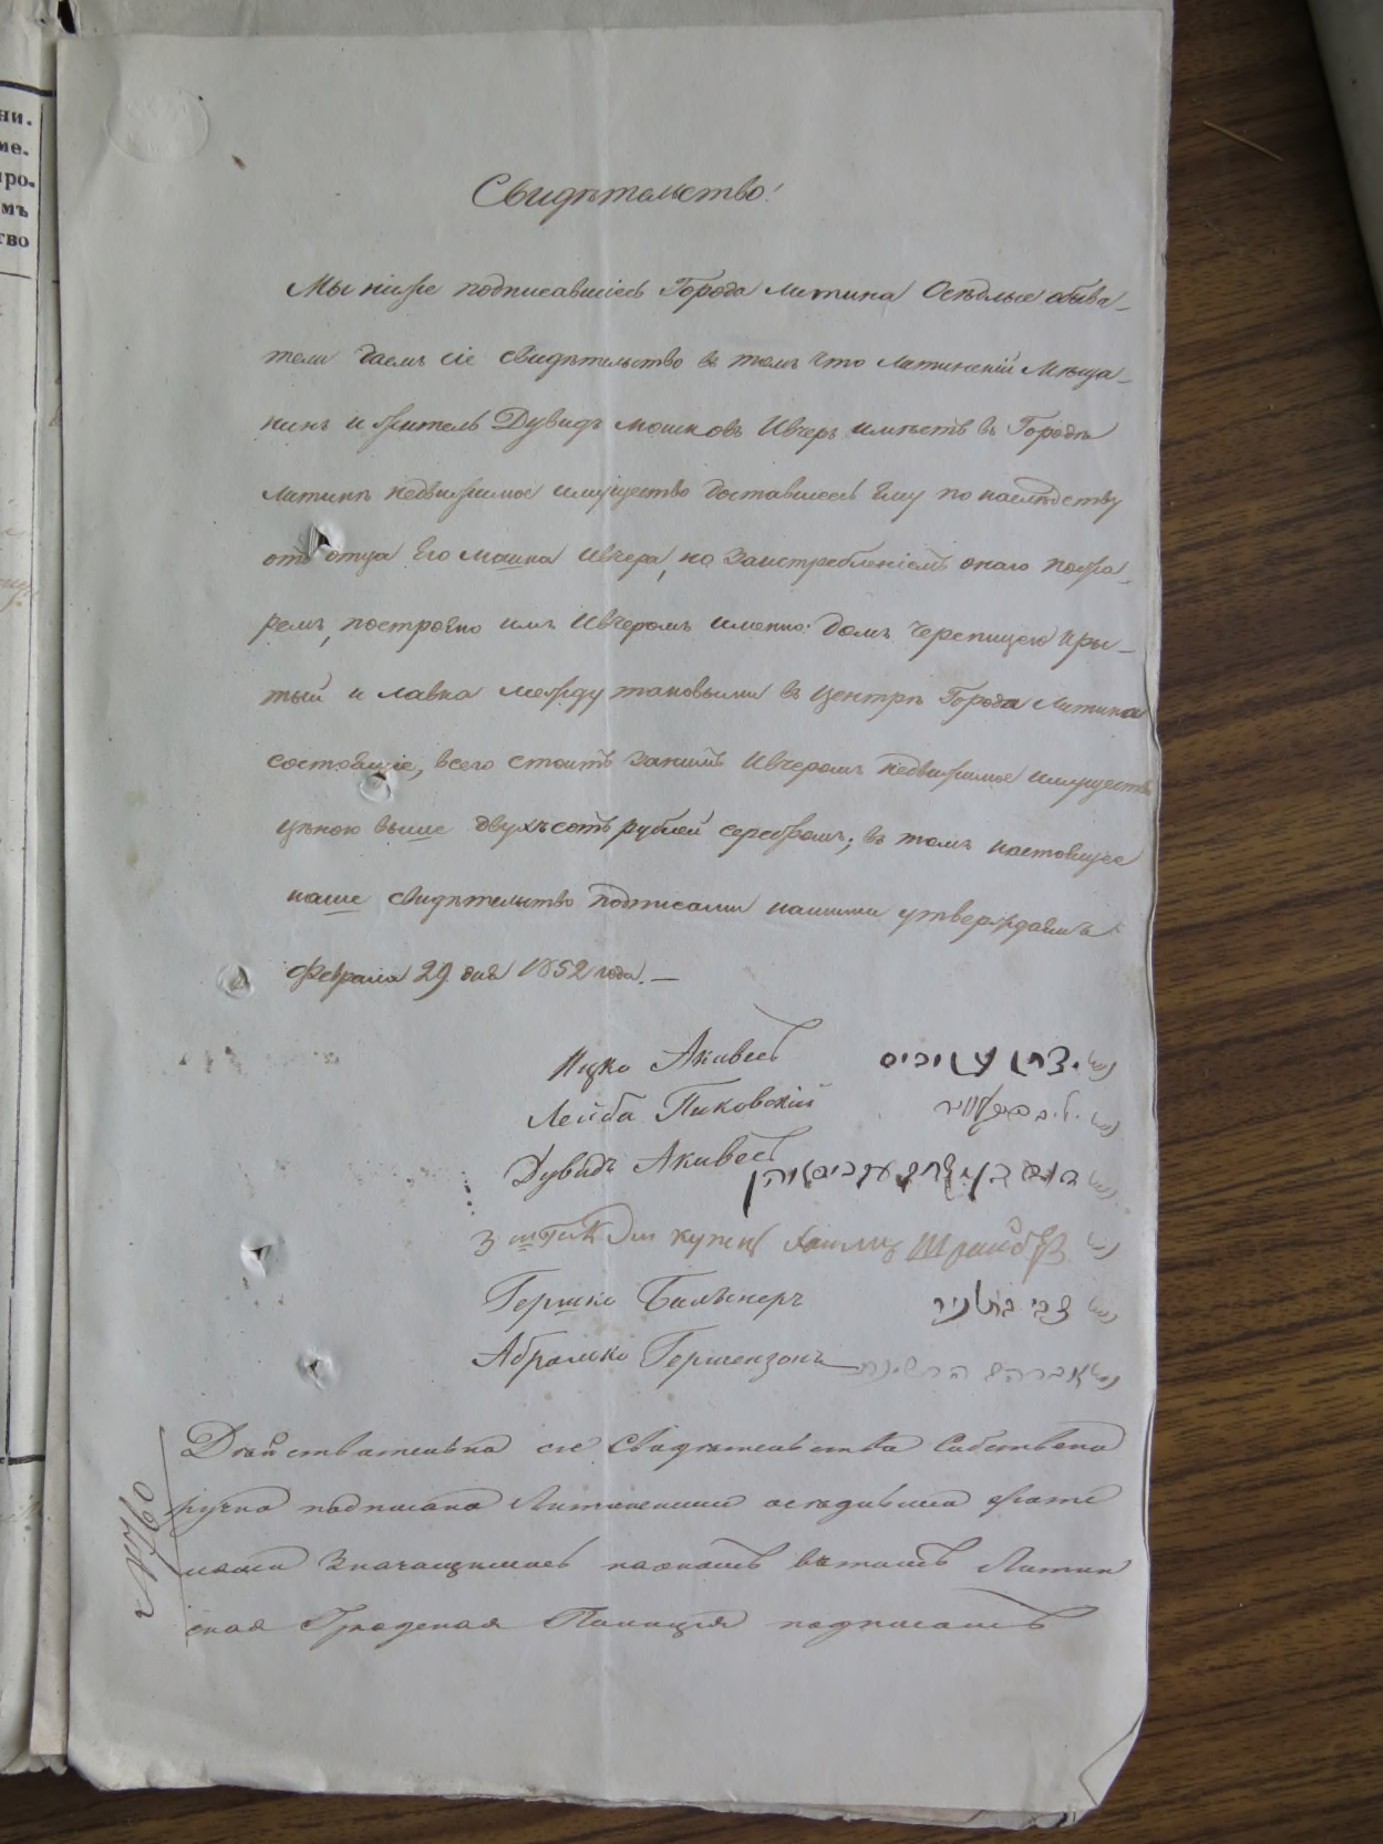 ни.
ме.
про.
мъ
тво
Свидѣтельство!
Мы ниже подписавшіесь Города Литина Осѣдлые обыва-
тели даемъ сіе свидѣтельство въ томъ что Литинскій Мѣща-
нинъ и житель Дувидъ Мошковъ Ивчеръ имѣетъ въ Городѣ
Литинѣ недвижимое имущество доставшеесь Ему по наслѣдству
отъ отца Его Мошка Ивчера, но заистребленіемъ онаго пожа-
ремъ, построено имъ Ивчеромъ именно: домъ черепицею кры-
тый и лавка между таковыми въ центрѣ Города Литина
состоящіе, всего стоитъ занимъ Ивчеромъ недвижимое имущество
цѣною выше двухъсотъ рублей серебромъ; въ томъ настоящее
наше свидѣтельство подписами нашими утверждаемъ
Февраля 29 дня 1852 года. —
Ицко Акивесъ יצחק עקיביס
Лейба Пиковскій
Дувидъ Акивесъ
3 купец Шрайбер
Гершко Бальнеръ צבי
Абрамко Гершензонъ אברהם
Дѣйствительно сіе Свидѣтельства Собствено
ручно подписано Литинскими осѣдлыми жите
лями Значащимись наономъ вътомъ Литин
ская Градская Полиція подписомъ
№ 1760